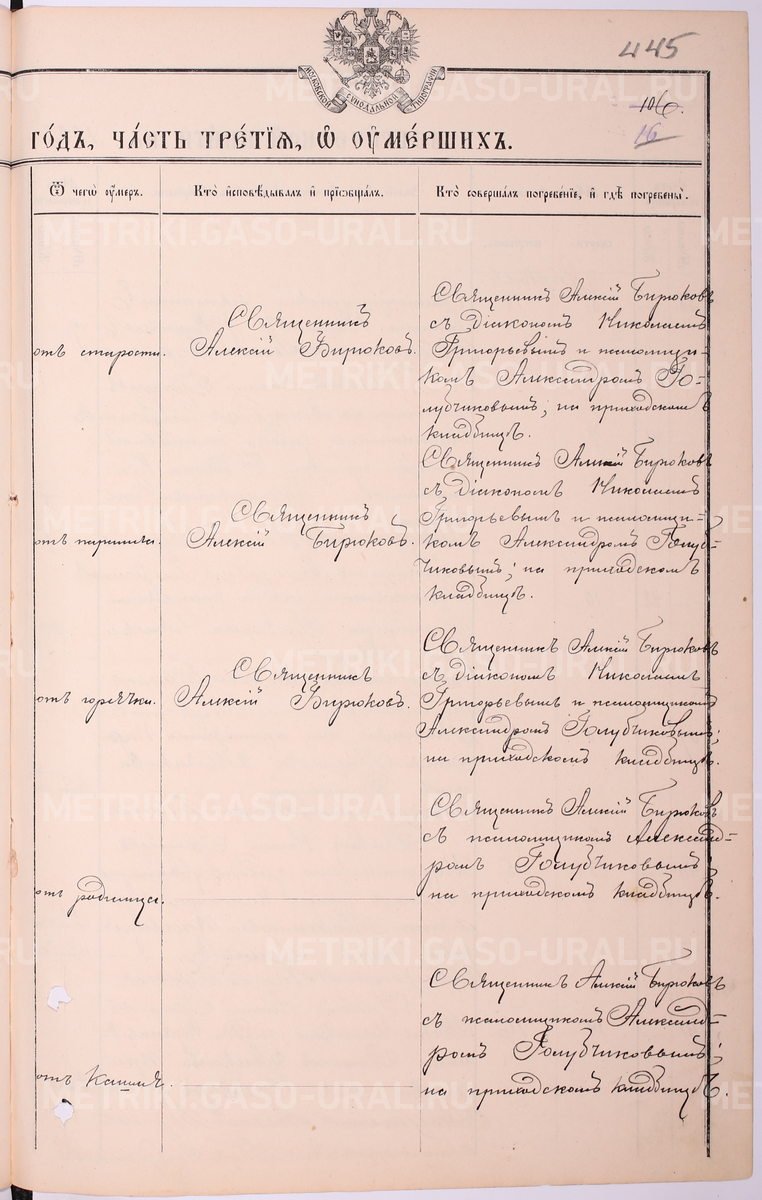 445
106.
16
МОСКОВСКОЙ СѴНОДАЛЬНОЙ ТИПОГРАФІИ
ГО́ДЪ, ЧА́СТЬ ТРЕ́ТІЯ, Ѡ҆ ОУ҆МЕ́РШИХЪ.
Ѿ чегѡ̀ оу҆́меръ.
Кто̀ и҆сповѣ́дывалъ и҆ прїѡбща́лъ.
Кто̀ соверша́лъ погребе́нїе, и҆ гдѣ̀ погребены̀.
отъ старости.
Священникъ
Алексій Бирюковъ.
Священникъ Алексій Бирюковъ
съ діакономъ Николаемъ
Григорьевымъ и псаломщи-
комъ Александромъ Го-
лубчиковымъ; на приходскомъ
кладбищѣ.
отъ
Священникъ
Алексій Бирюковъ.
Священникъ Алексій Бирюковъ
съ діакономъ Николаемъ
Григорьевымъ и псаломщи=
комъ Александромъ Голуб=
чиковымъ; на приходскомъ
кладбищѣ.
отъ горячки.
Священникъ
Алексій Бирюковъ.
Священникъ Алексій Бирюковъ
съ діакономъ Николаемъ
Григорьевымъ и псаломщикомъ
Александромъ Голубчиковымъ;
на приходскомъ кладбищѣ.
отъ родимца.
Священникъ Алексій Бирюковъ
съ псаломщикомъ Александ=
ромъ Голубчиковымъ;
на приходскомъ кладбищѣ.
отъ Кашля.
Священникъ Алексій Бирюковъ
съ псаломщикомъ Александ=
ромъ Голубчиковымъ;
на приходскомъ кладбищѣ.
METRIKI.GASO-URAL.RU